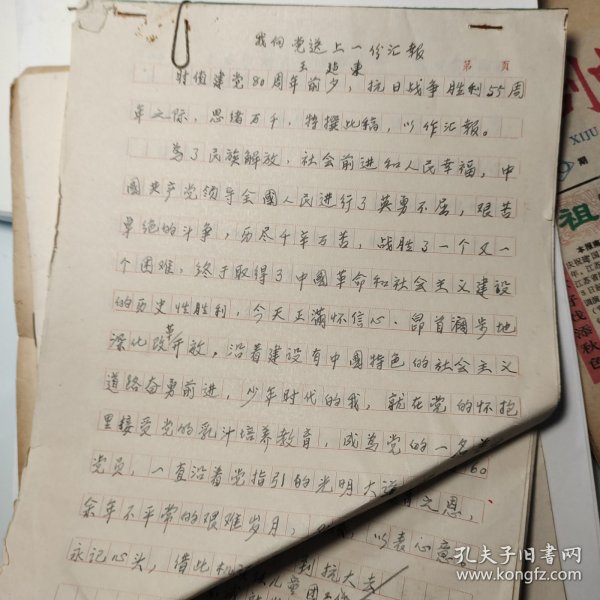 我向党送上一份汇报
王 东
第 页
时值建党80周年前夕，抗日战争胜利55周
年之际，思绪万千，特撰此稿，以作汇报。
為了民族解放，社会前进和人民幸福，中
國共产党领导全國人民进行了英勇不屈，艰苦
卓绝的斗争，历尽千辛万苦，战胜了一个又一
个困难，终于取得了中國革命和社会主义建设
的历史性胜利，今天正满怀信心、昂首阔步地
深化改革开放，沿着建设有中國特色的社会主义
道路奋勇前进，少年时代的我，就在党的怀抱
里接受党的乳汁培养教育，成為党的一名
党员，一直沿着党指引的光明大道 60
余年不平常的艰难岁月， 之恩，
永记心头，借此 以表心意
到抗大去
童团
XIJU
期
祖
孔夫子旧书网
www.kongfz.com